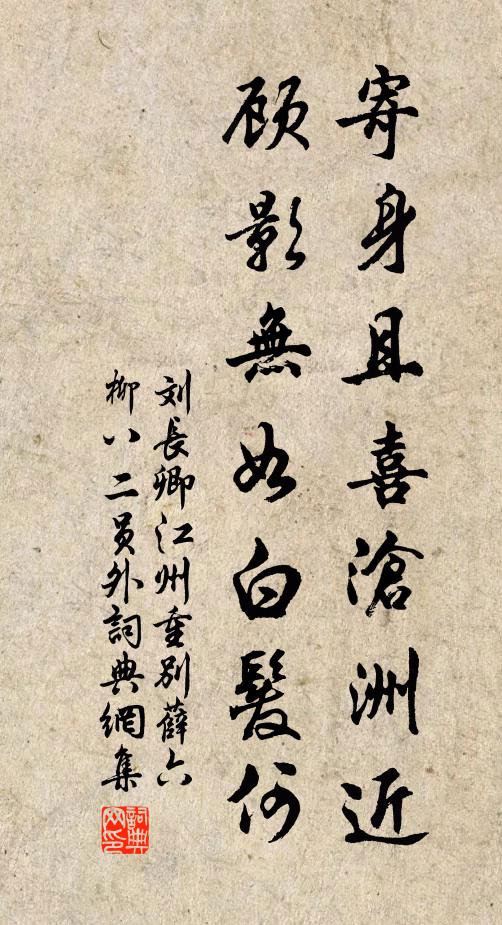 寄身且喜滄洲近
顧影無如白髮何
刘長卿江州重别薛六
柳八二員外詞典網集
詞典网印